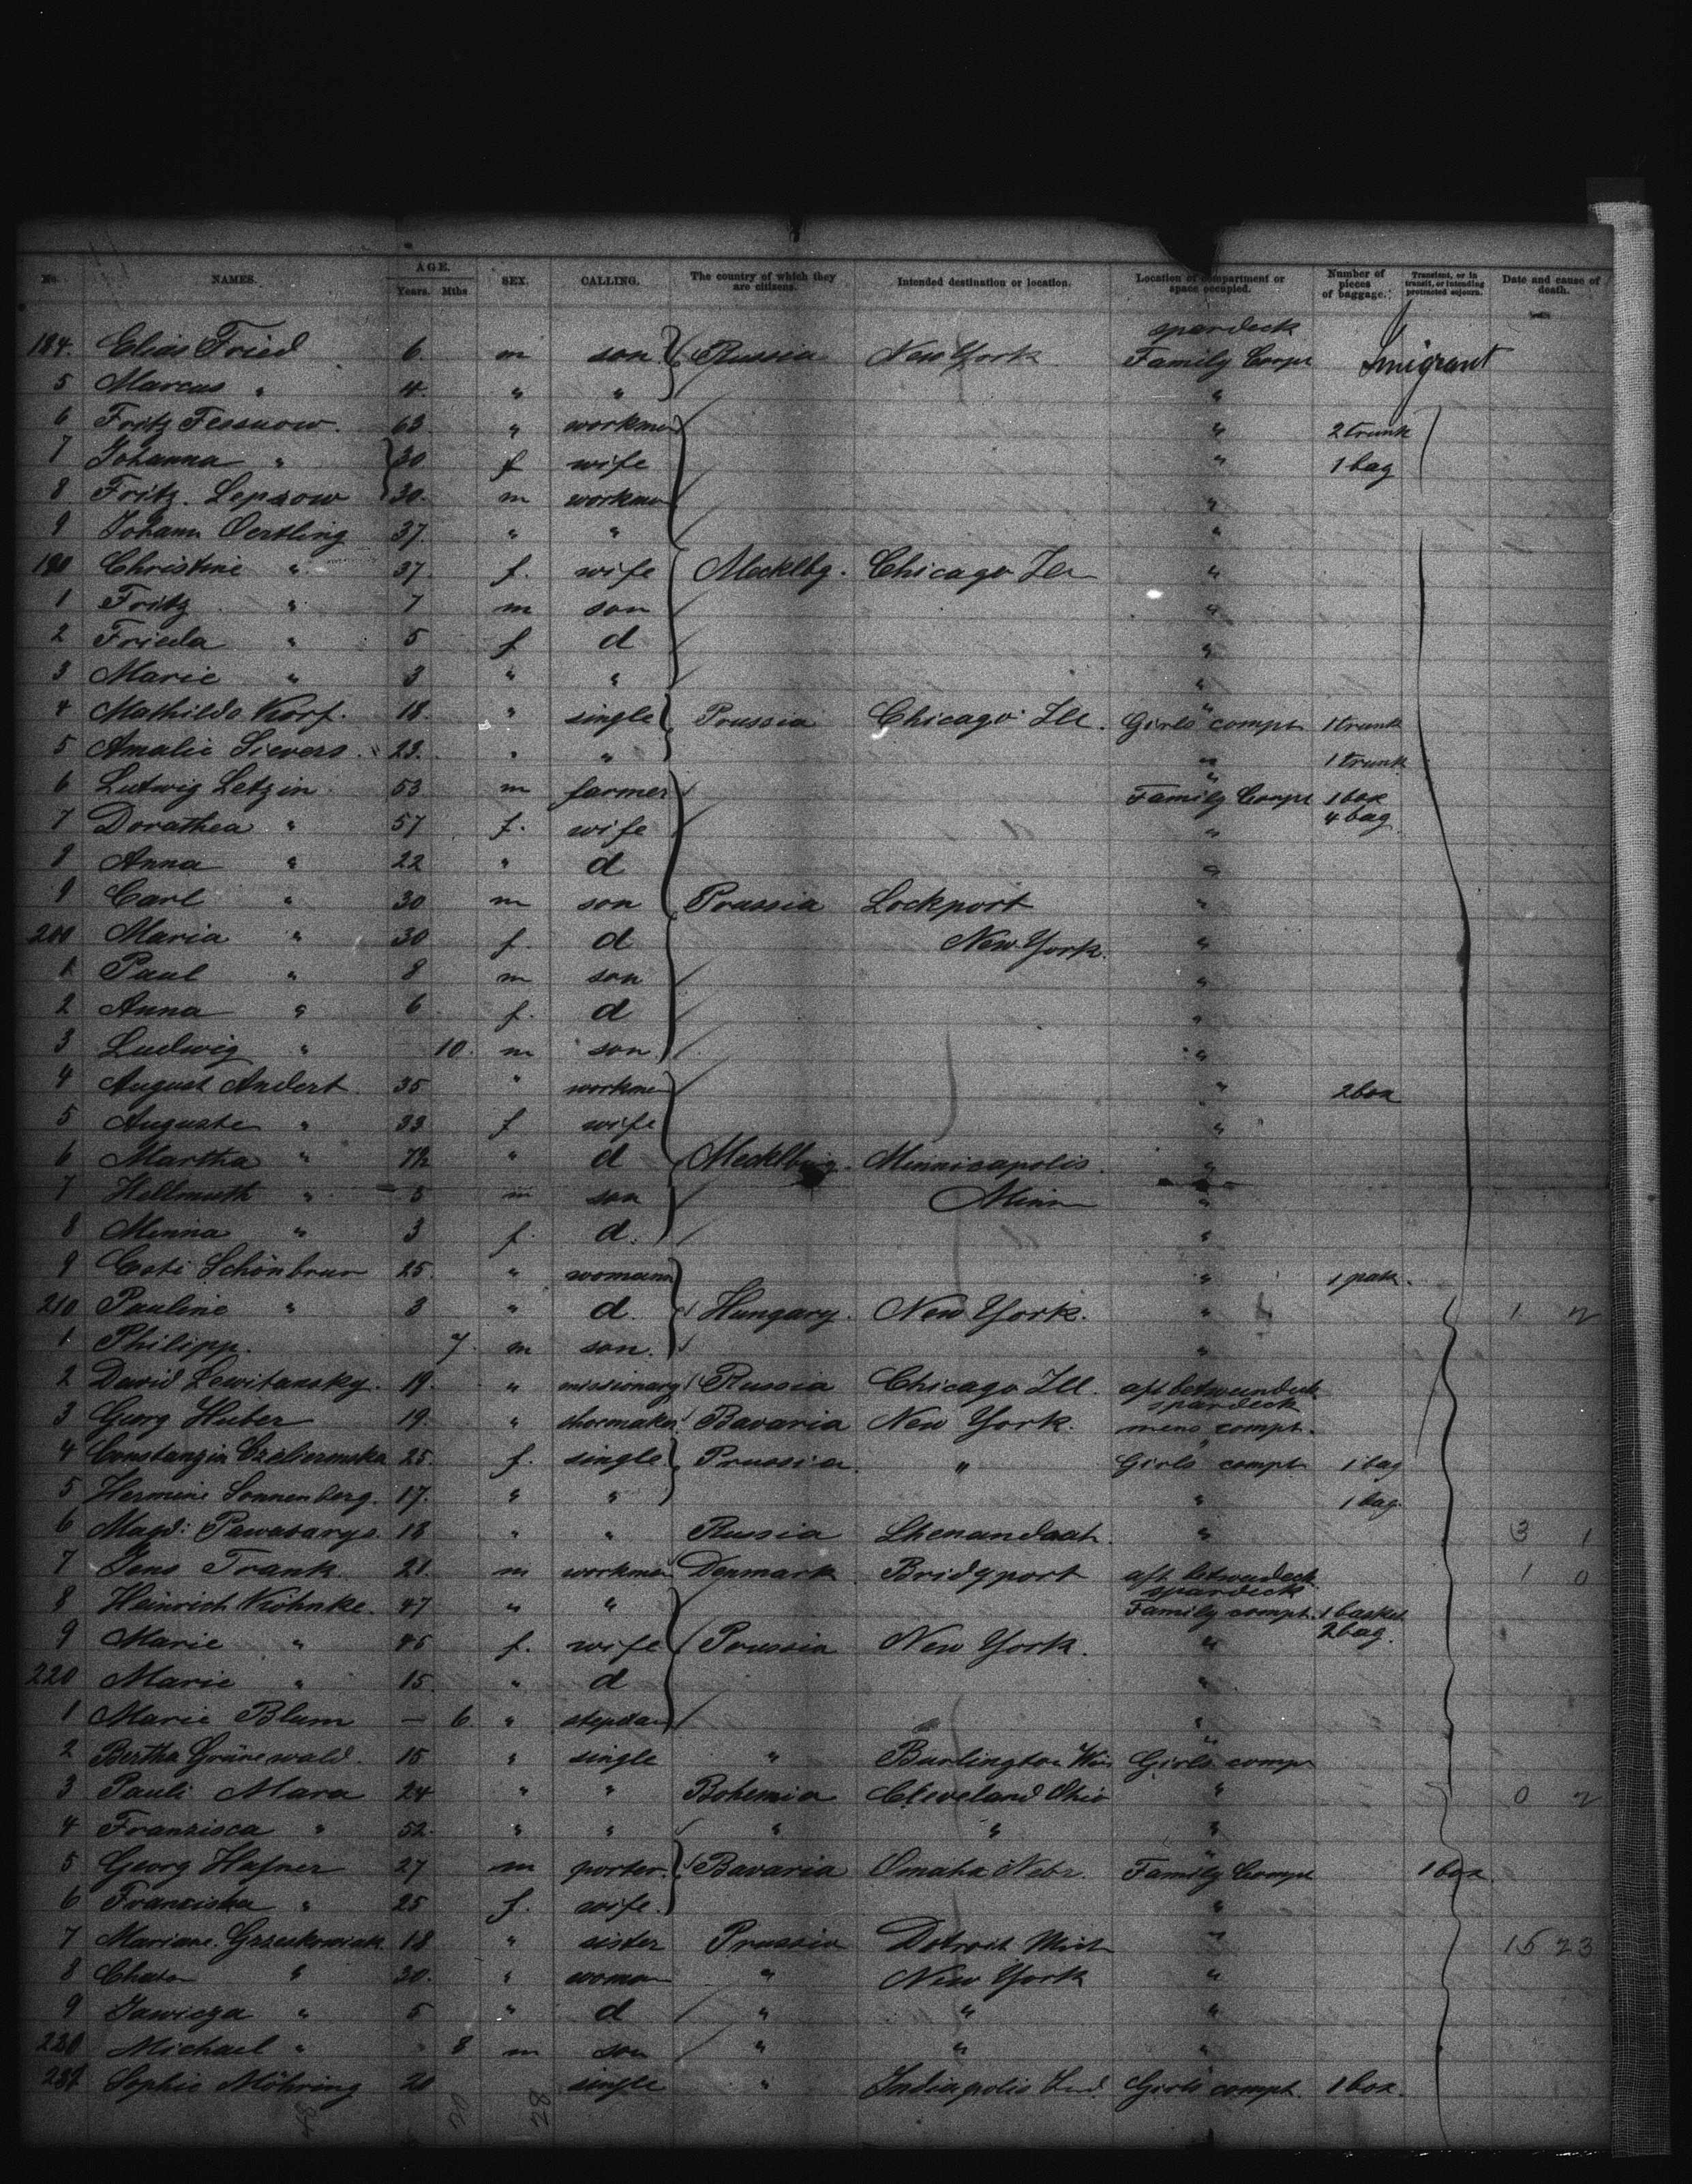 No. NAMES. AGE. Years. Mths SEX. CALLING. The country of which they are citizens. Intended destination or location. Location of compartment or space occupied. Number of pieces of baggage. Transient, or in transit, or intending protracted sojourn. Date and cause of death.
spardeck
184. Elias Fried 6. m son Russia New York Family Compt
5 Marcus " 4. " " "
6 Fritz Fessnow. 63. " workman " 2 trunk
7 Johanna " 30 f wife " 1 bag
8 Fritz Lepsow 30. m workman "
9 Johann Oertling 37. " " "
190 Christine " 37. f. wife Mecklbg. Chicago Ill "
1 Fritz " 7 m son "
2 Frieda " 5 f d "
3 Marie " 3 " " "
4 Mathilde Korf. 18. " single Prussia Chicago Ill. Girls compt 1 trunk
5 Amalie Sievers 23. " " " 1 trunk
6 Lutwig Letzin 53 m farmer Family Compt 1 box
4 bag
7 Dorathea " 57 f. wife "
8 Anna " 22 " d "
9 Carl " 30 m son Prussia Lockport "
200 Maria " 30 f. d New York. "
1 Paul " 8 m son "
2 Anna " 6 f. d "
3 Ludwig " 10. m son "
4 August Andert 35 " workman " 2 box
5 Auguste " 33 f wife "
6 Martha " 7½ " d Mecklburg. Minnieapolis "
7 Hellmuth " 5 m son Minn "
8 Minna " 3 f. d. "
9 Cati Schönbrun 25. " womann " 1 pack.
210 Pauline " 3 " d. Hungary. New York. " 1 2
1 Philipp. 7. m son. "
2 David Lewitansky. 19. " missionary Russia Chicago Ill. aft betweendeck
spardeck
3 Georg Huber 19. " shoemaker Bavaria New York. mens compt.
4 Constanzia 25. f. single Prussia " Girls compt 1 bag
5 Hermine Sonnenberg. 17. " " " 1 bag
6 Magd: Pawasarys 18 " " Russia Shenandoah. " 3 1
7 Jens Frank 21. m workman Denmark Bridgport aft betweendeck 1 0
spardeck
8 Heinrich Köhnke. 47 " " Family compt. 1 basket
2 bag.
9 Marie " 45 f. wife Prussia New York. "
220 Marie " 15. " d "
1 Marie Blum — 6. " stepdau "
2 Bertha Grünewald. 15 " single " Burlington Wis Girls comp
3 Pauli Mara 24 " " Bohemia Cleveland Ohio " 0 2
4 Franzisca " 52. " " " " "
5 Georg Hafner 27 m porter. Bavaria Omaha Nebr. Family Compt 1 box.
6 Franziska " 25 f. wife. "
7 Mariane Grzeskowiak 18 " sister Prussia Detroit Mich " 15 23
8 " 30. " woman " New York "
9 " 5 " d " " "
230 Michael " 8 m son " " "
231 Sophie Möhring 20 single " Indiapolis Ind. Girls compt. 1 box.